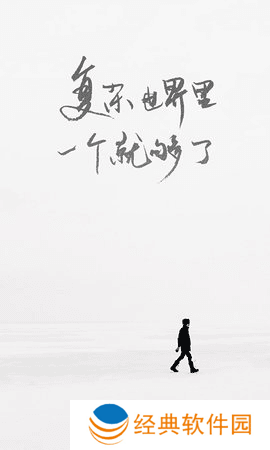 复杂世界里
一个就够了
经典软件园